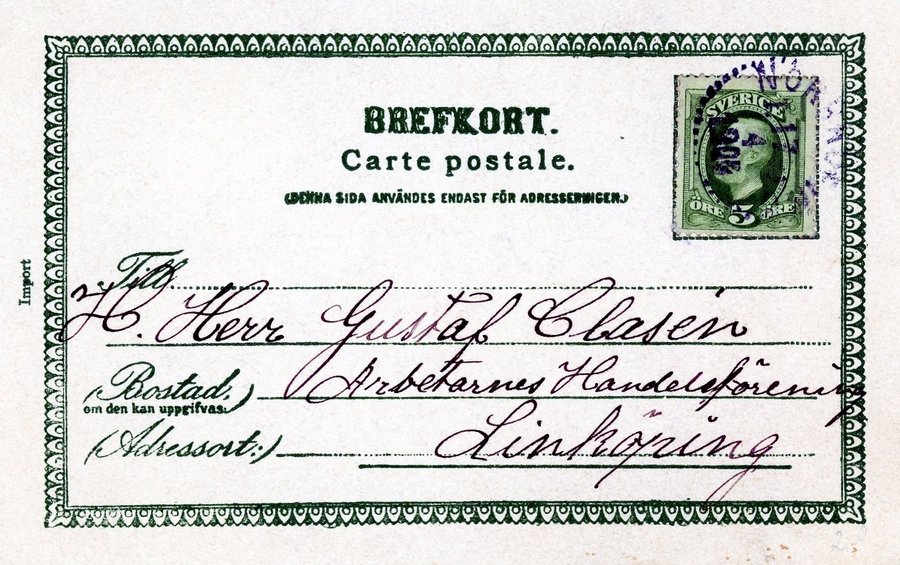 BREFKORT.
Carte postale.
(DENNA SIDA ANVÄNDES ENDAST FÖR ADRESSERINGEN.)
SVERIGE
ÖRE 5 ÖRE
Till
H. Herr Gustaf Clasén
(Bostad.) Arbetarnes Handelsförening
om den kan uppgifvas.
(Adressort:) Linköping
Import